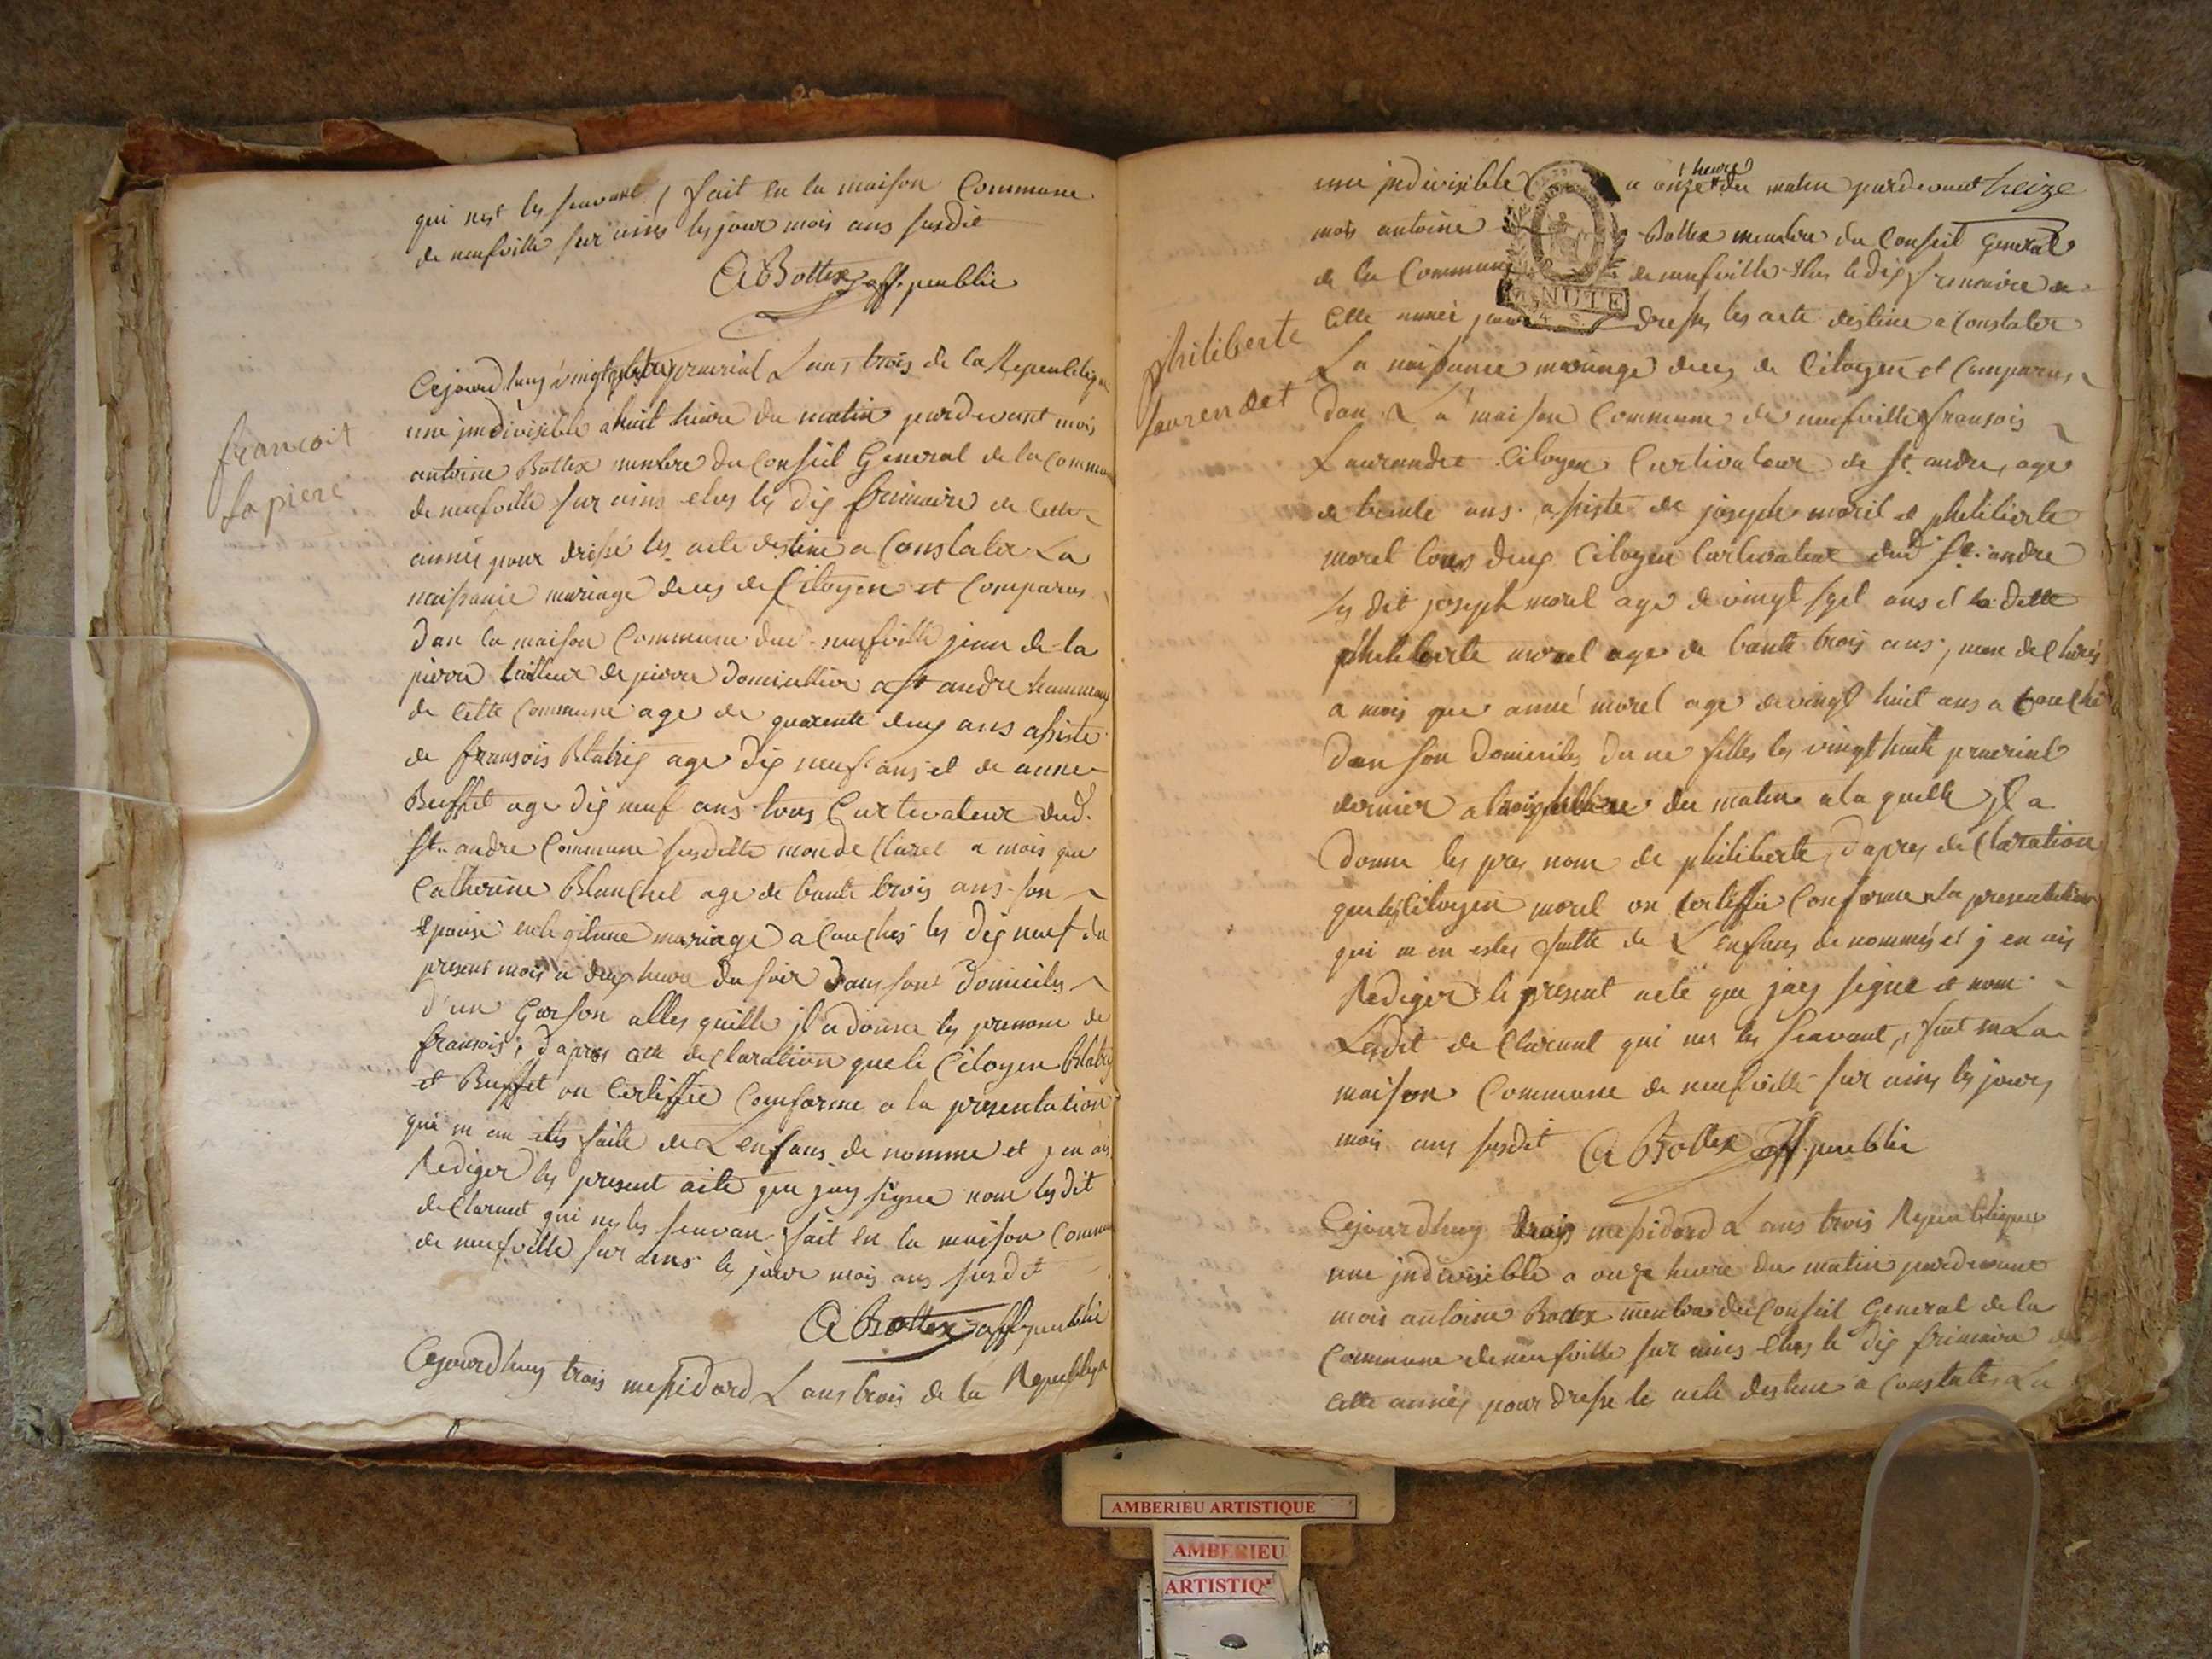 qui nest les seavant, fait en la maison Commune
de neufville sur ains les jour mois ans susdit
A Bottex off. publie
francoit
la piere
Cejourdhuy vingt prairial L ans trois de la Republique
une jndivisible a huit heure du matin pardevant mois
antoine Bottex membre du Conseil General de la Commune
de neufville sur ains elus les dix frimaire de Cette
année pour dressé les acte destine a Constater La
naissance mariage deces de Citoyen et Comparus
dan la maison Commune dud. neufville jean de la
pierre tailleur de pierre domicillier a st andre hammeaux
de Cette Commune age de quarente deux ans assiste
de fransois Blatrix age dix neuf ans et de anne
Buffet age dix neuf ans tous Curtivateur dud.
St. andre Commune susditte mon de Clarer a mois que
Catherine Blanchet age de trante trois ans son
epouise en legitime mariage a Couches les dix neuf du
present mois a deux heure du soir dans sont domiciles
d'un Garson alles quelle jl a donne les prenome de
fransois, d'apres cette declaration que le Citoyen Blatrix
et Buffet on Certiffie Conforme a la presentation
qui m en etes faite de L enfans de nomme et j en ais
Rediger les present acte que jay signe nom les dit
de Clarant qui nes les seavan fait en la maison Commune
de neufville sur ains les jour mois ans susdit
A Bottex off publie
Cejourdhuy trois messidord L ans trois de la Republique
une jndivisible a onze heure du matin pardevant treize
mois antoine Bottex membre du Conseil General
de la Commune de neufville elus le dix frimaire de
MINUTE
4 S.
Cette année pour dresses les acte destine a Constater
philiberte
laurendet
La naissance mariage deces de Citoyen et Comparus
dan La maison Commune de neufville fransois
Laurandet Citoyen Curtivateur de st. andre, age
de trante ans. assiste de joseph morel et philiberte
morel tous deux Citoyen Curtivateur dud. St. andre
les dit joseph morel age de vingt sept ans et la ditte
philiberte morel age de trante trois ans, mon de Clarés
a mois que anne morel age de vingt huit ans a Couché
dan son domiciles du ne filles les vingt huite prairial
dernier a trois heure du matin a la quelle jl a
donne les pres nome de philiberte, d'apres de Claration
que les Citoyen morel on Certiffie Conforme a la presentation
qui m en etes faitte de L enfans de nommés et j en ais
Rediger le present acte que jaey signe et nom
Lesdit de Clarant qui nes les seavant, fait en La
maison Commune de neufville sur ains les jours
mois ans susdit A Bottex off. publie
Cejourdhuy trois messidord L ans trois Republique
une jndivisible a onze heure du matin pardevant
mois antoine Bottex membre du Conseil General de la
Commune de neufville sur ains elus le dix frimaire de
Cette année pour dresse les acte destine a Constater La
AMBERIEU ARTISTIQUE
AMBERIEU
ARTISTIQ